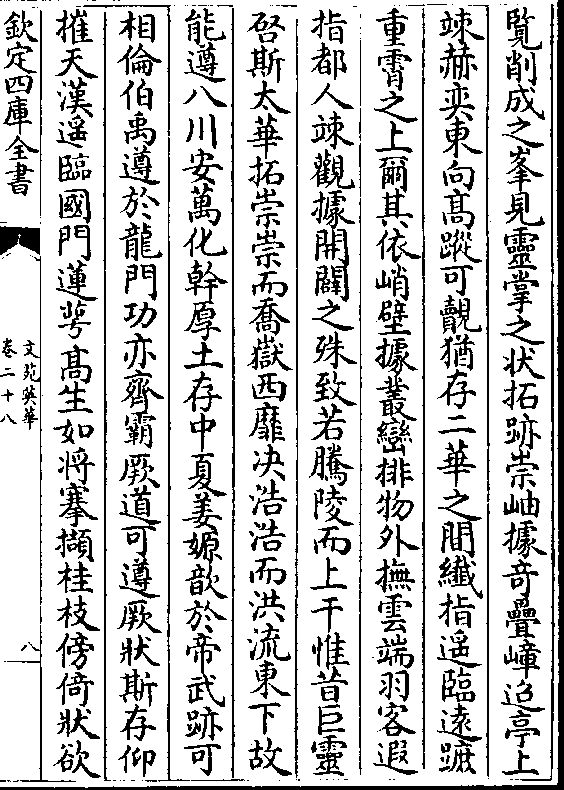 覧削成之峯見靈掌之状拓跡崇岫據竒疊嶂迢亭上
竦赫奕東向髙蹤可覿猶存二華之間纎指遥臨逺蹠
重霄之上爾其依峭壁據叢巒排物外撫雲端羽客遐
指都人竦觀據開闢之殊致若騰陵而上干惟昔巨靈
啓斯太華拓崇崇而喬嶽西靡决浩浩而洪流東下故
能遵八川安萬化幹厚土存中夏姜嫄歆於帝武跡可
相倫伯禹遵於龍門功亦齊霸厥道可遵厥狀斯存仰
摧天漢遥臨國門蓮蕚髙生如將搴擷桂枝傍倚狀欲
欽定四庫全書
文苑英華
卷二十八
八